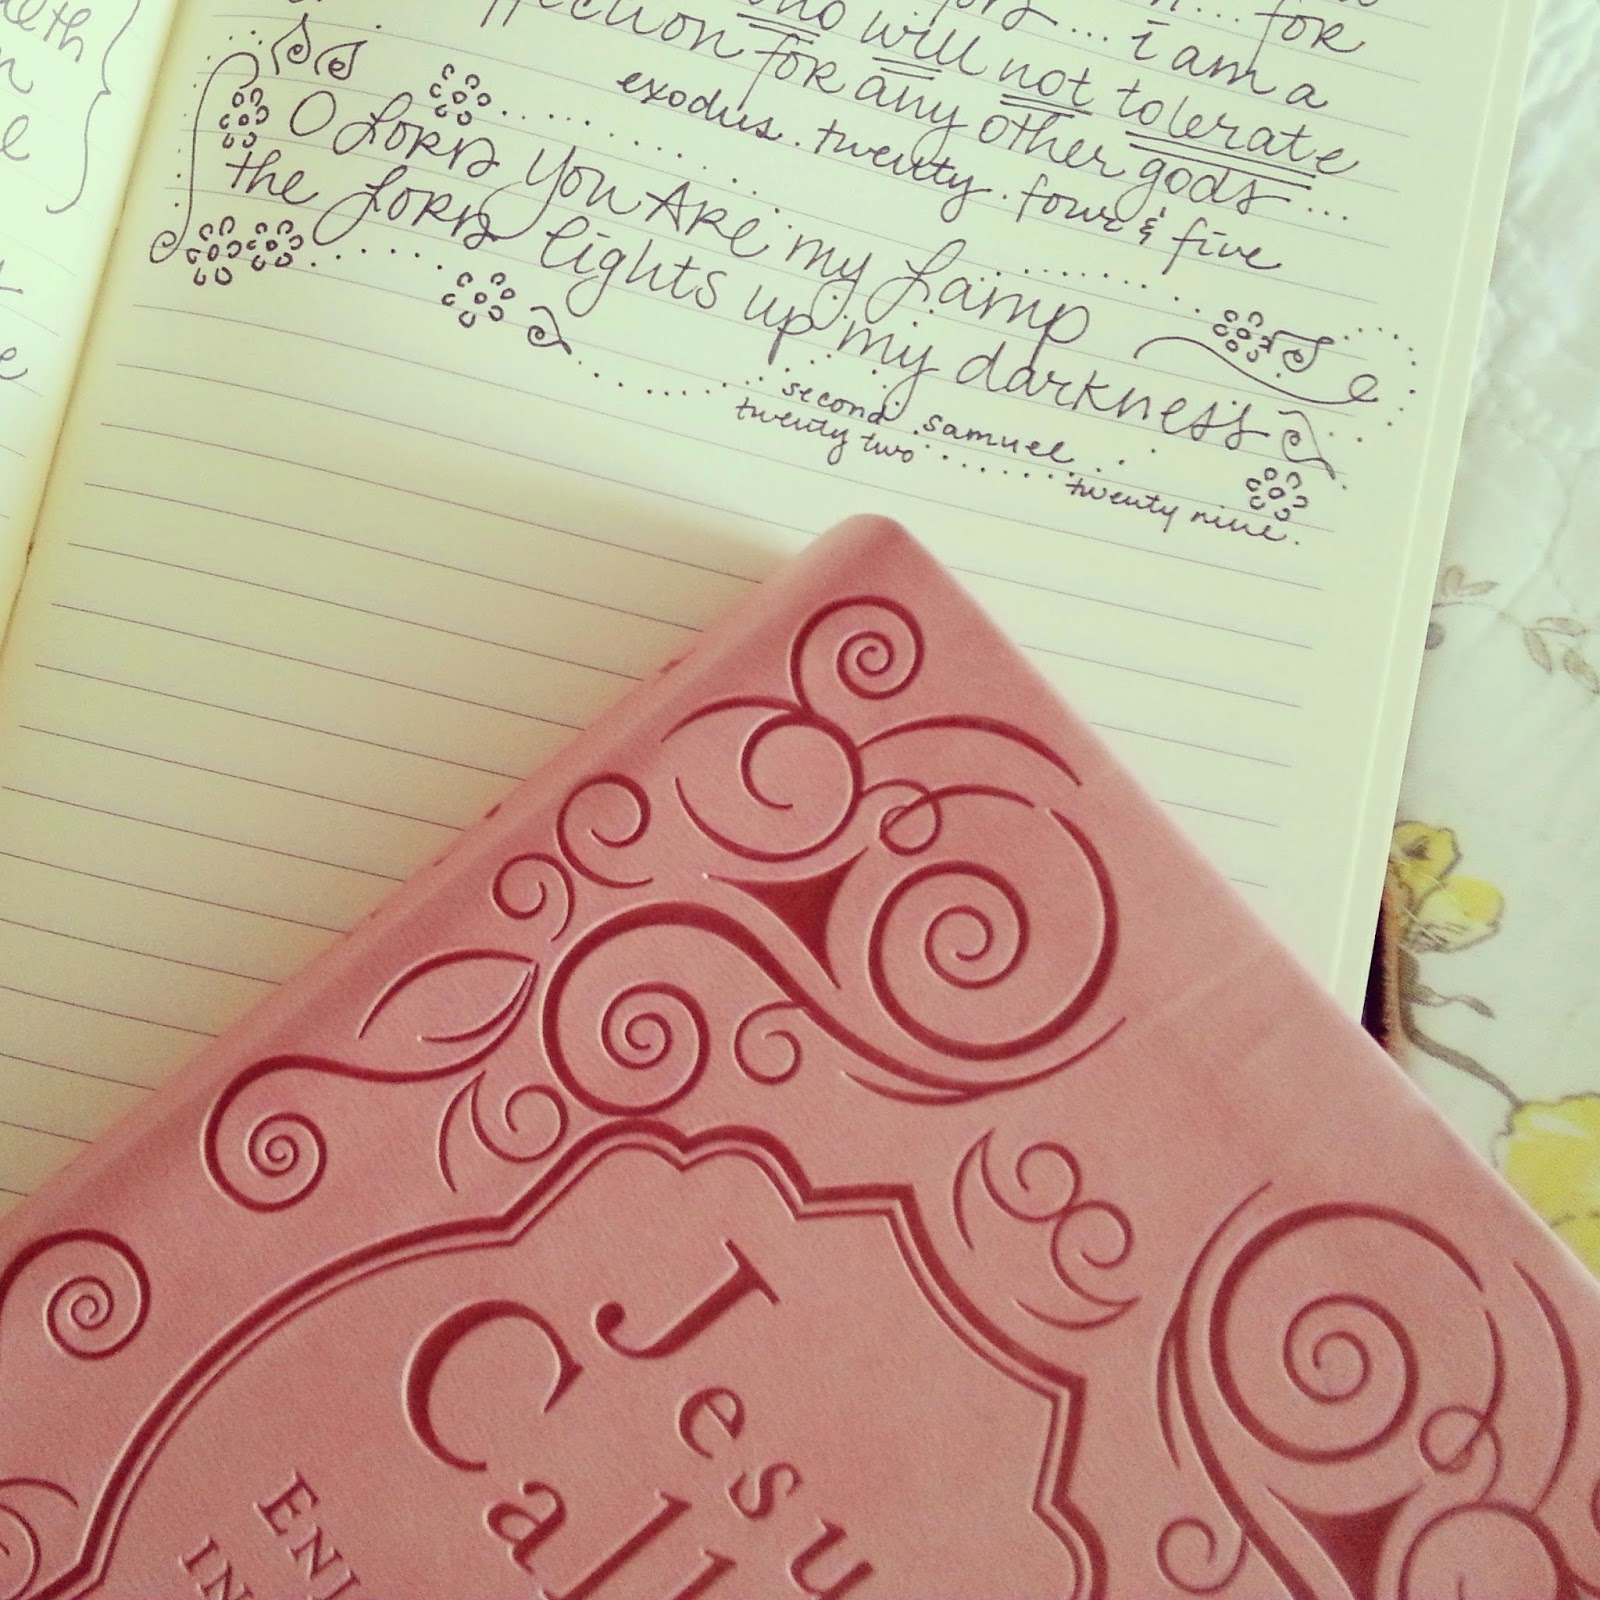 for
i am a
who will not tolerate
for any other gods...
exodus. twenty. four & five
O Lord You Are my Lamp
the Lord lights up my darkness
second samuel...
twenty two
twenty nine.
Jesu
Call
ENJ
IN